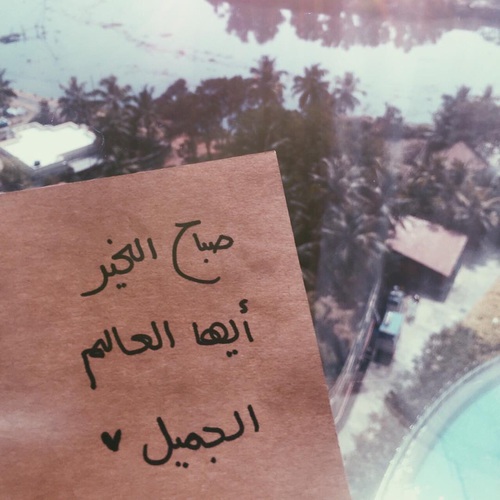 صباح الخير
أيها العالم
الجميل ♥